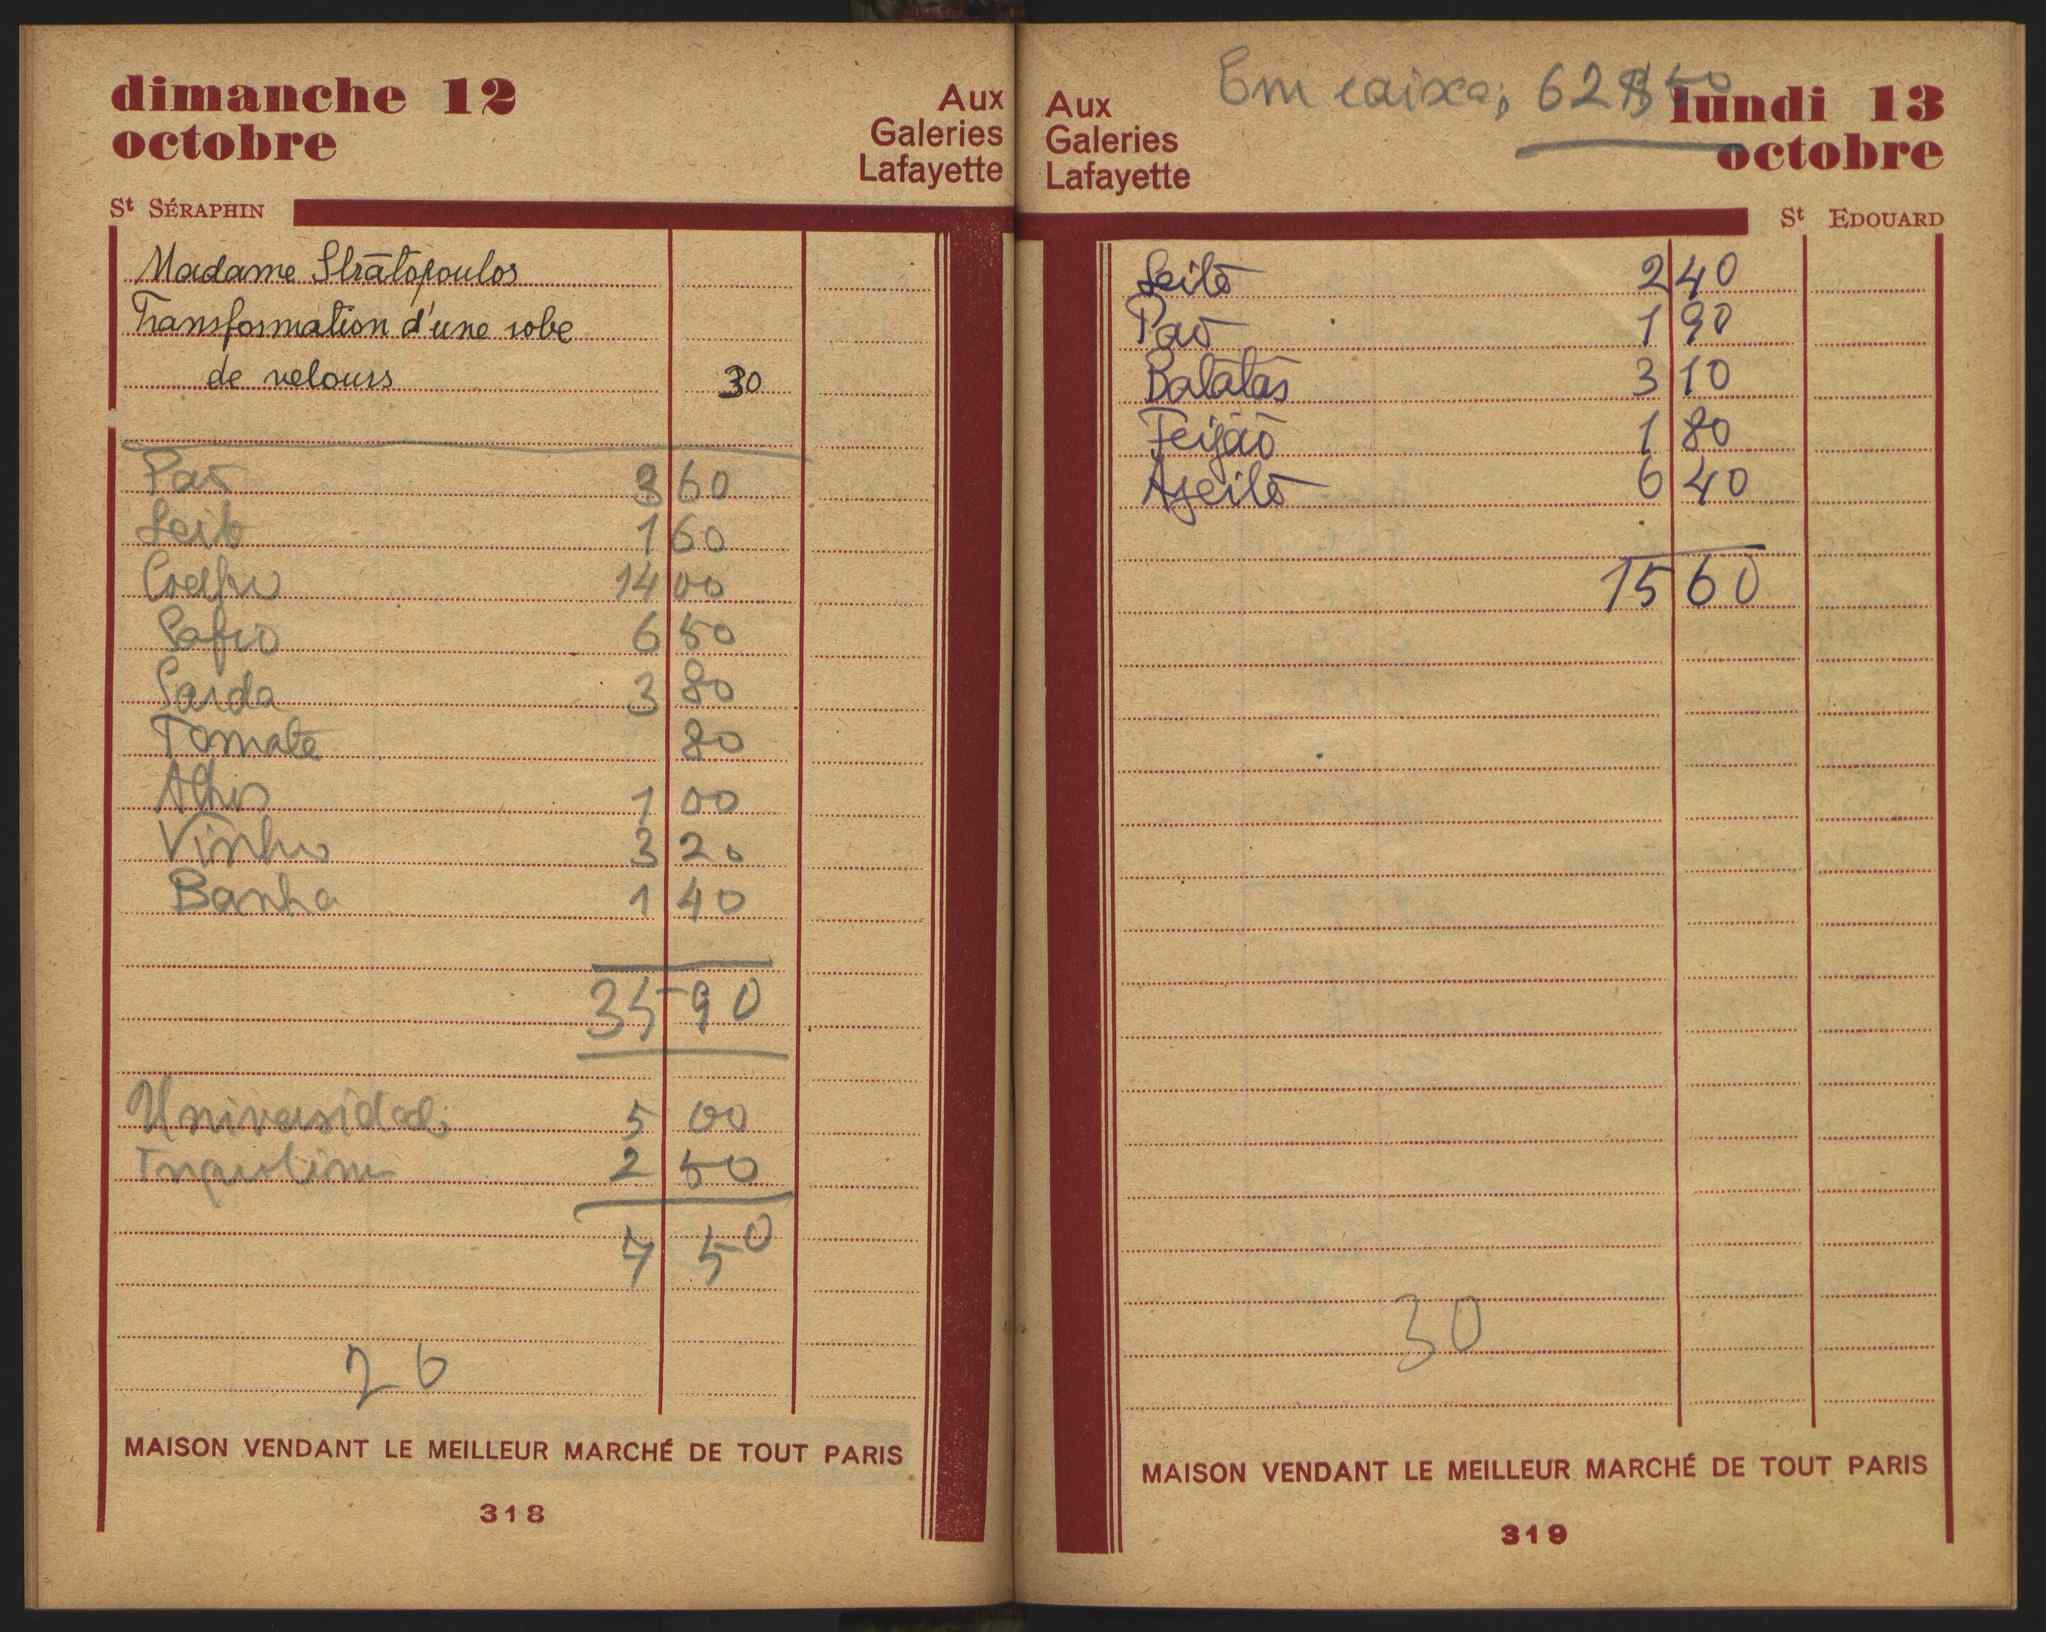 dimanche 12
octobre
Aux
Galeries
Lafayette
St SÉRAPHIN
Madame Stratopoulos
Transformation d'une robe
de velours 30
Pão 3 60
Leite 1 60
Coelho 14 00
Safio 6 50
Sarda 3 80
Tomate 80
Alhos 1 00
Vinho 3 20
Banha 1 40
35 90
Universidade 5 00
2 50
7 50
26
MAISON VENDANT LE MEILLEUR MARCHÉ DE TOUT PARIS
318
Em caixa; 62$50
Aux
Galeries
Lafayette
lundi 13
octobre
St EDOUARD
Leite 2 40
Pão 1 90
Batatas 3 10
Feijão 1 80
Azeite 6 40
15 60
30
MAISON VENDANT LE MEILLEUR MARCHÉ DE TOUT PARIS
319